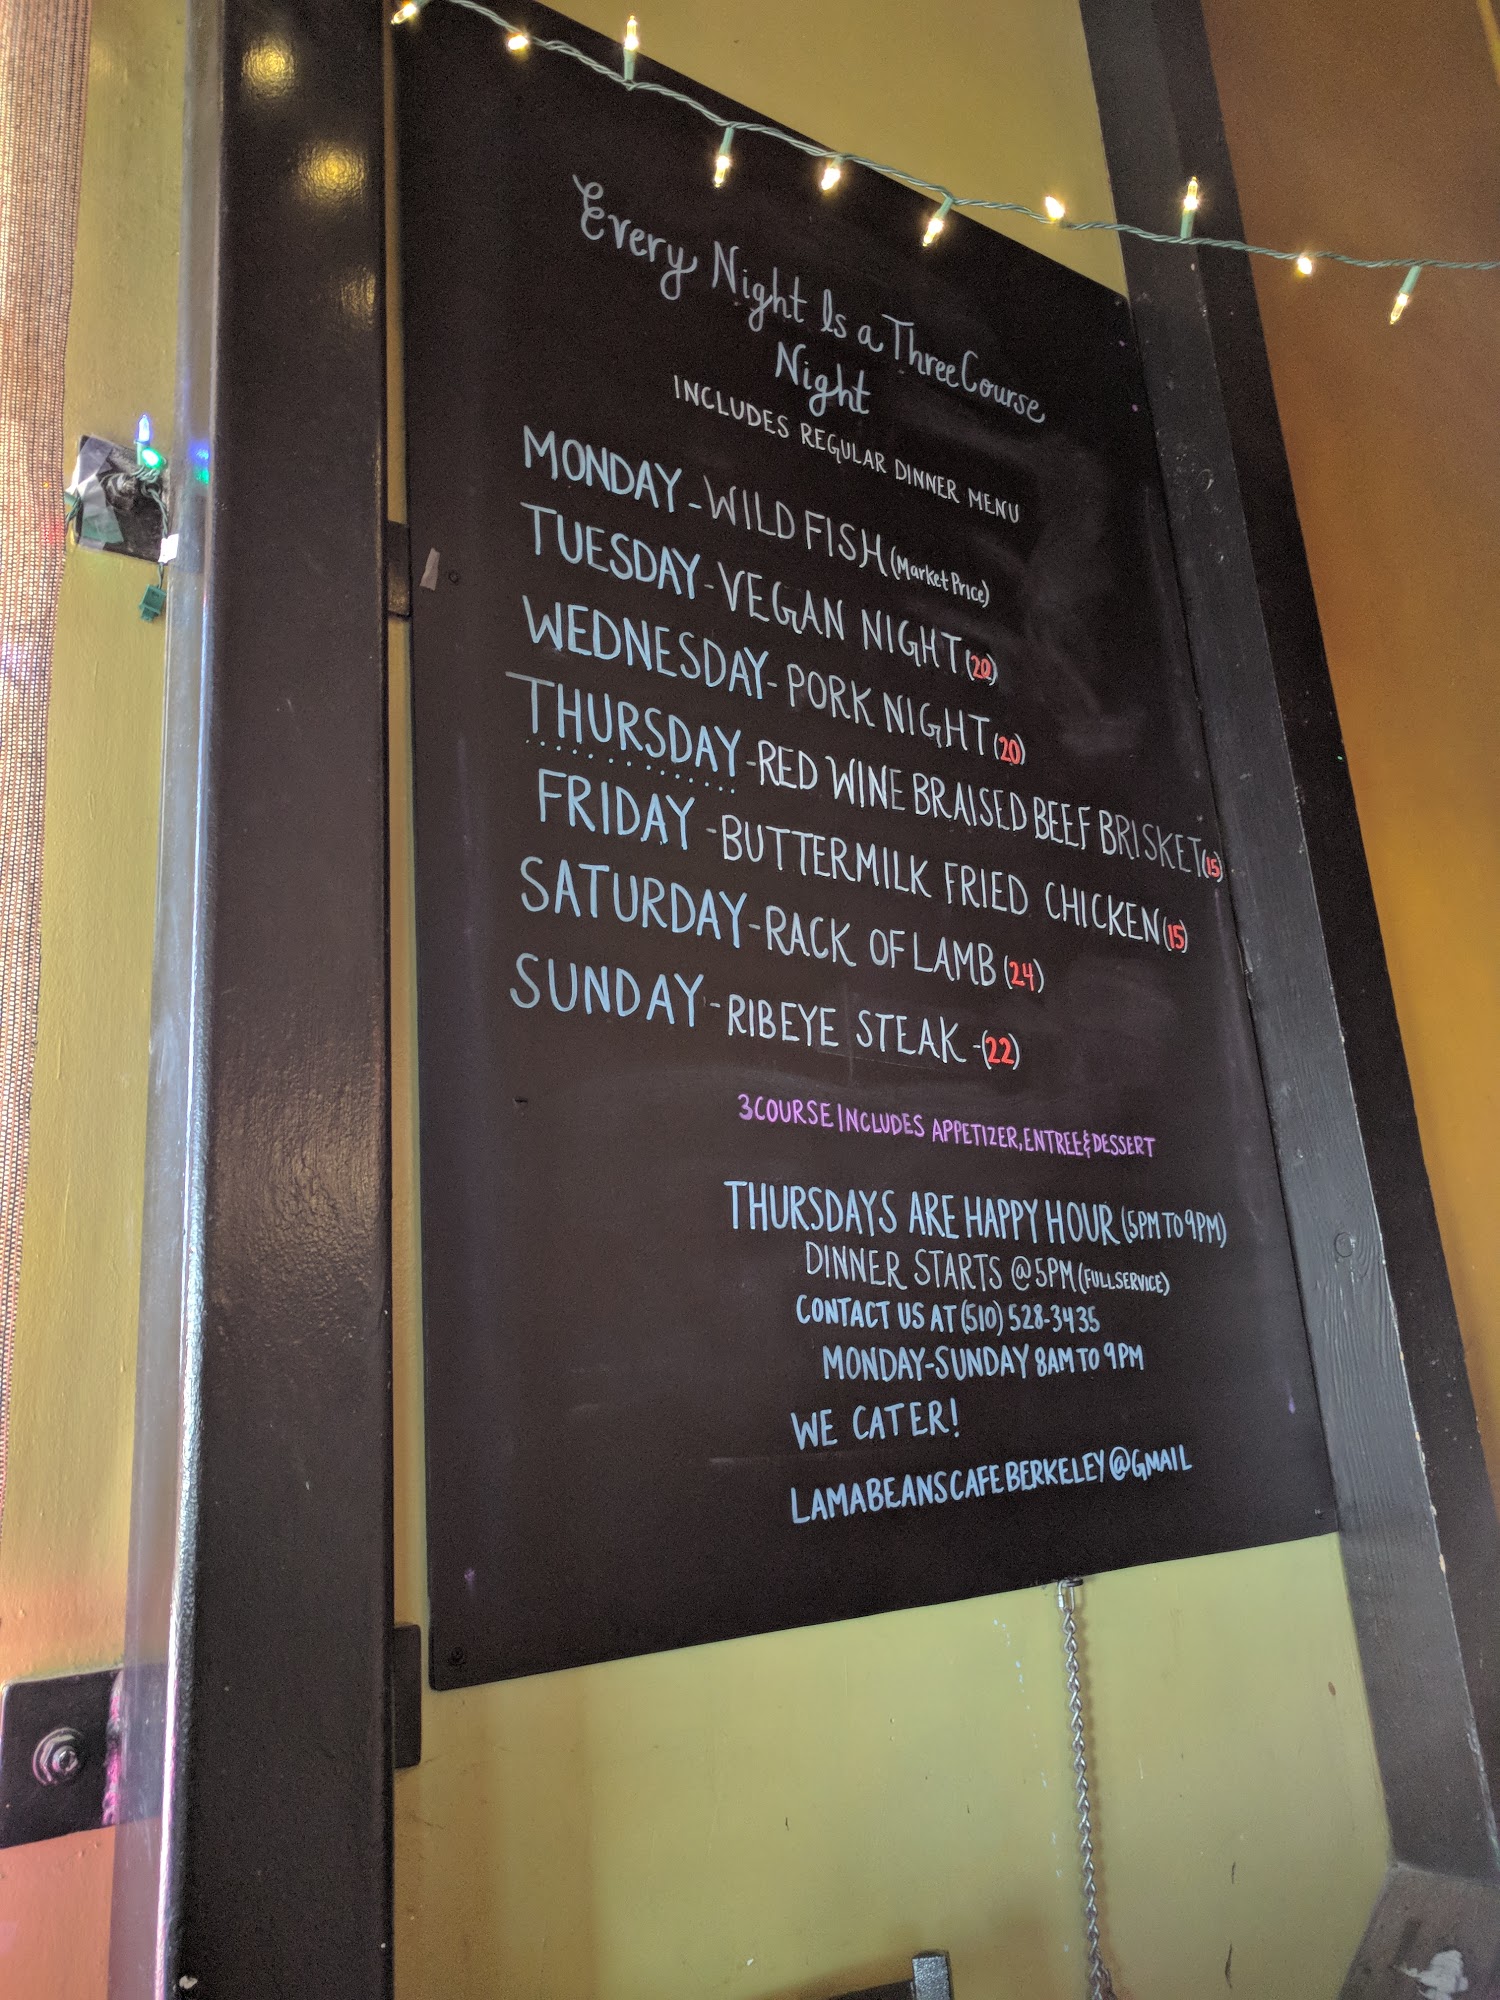 Every Night Is a Three Course
Night
INCLUDES REGULAR DINNER MENU
MONDAY - WILD FISH (Market Price)
TUESDAY - VEGAN NIGHT (20)
WEDNESDAY - PORK NIGHT (20)
THURSDAY - RED WINE BRAISED BEEF BRISKET (15)
FRIDAY - BUTTERMILK FRIED CHICKEN (15)
SATURDAY - RACK OF LAMB (24)
SUNDAY - RIBEYE STEAK - (22)
3 COURSE INCLUDES APPETIZER, ENTREE & DESSERT
THURSDAYS ARE HAPPY HOUR (5PM TO 9PM)
DINNER STARTS @ 5PM (FULL SERVICE)
CONTACT US AT (510) 528-3435
MONDAY-SUNDAY 8AM TO 9PM
WE CATER!
LAMABEANSCAFEBERKELEY@GMAIL